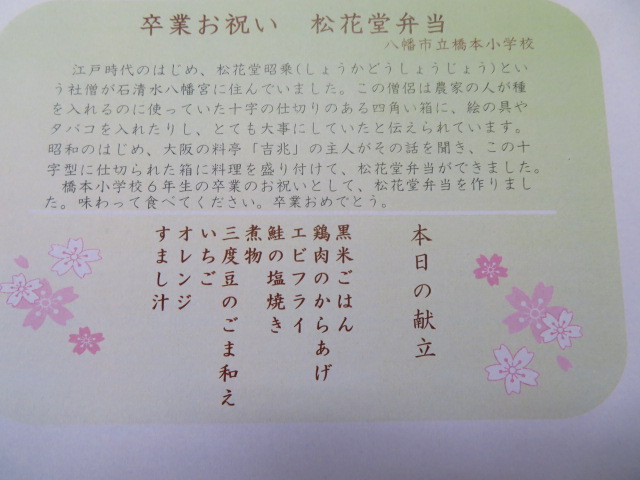 卒業お祝い　松花堂弁当
八幡市立橋本小学校
江戸時代のはじめ、松花堂昭乗(しょうかどうしょうじょう)とい
う社僧が石清水八幡宮に住んでいました。この僧侶は農家の人が種
を入れるのに使っていた十字の仕切りのある四角い箱に、絵の具や
タバコを入れたりし、とても大事にしていたと伝えられています。
昭和のはじめ、大阪の料亭「吉兆」の主人がその話を聞き、この十
字型に仕切られた箱に料理を盛り付けて、松花堂弁当ができました。
橋本小学校６年生の卒業のお祝いとして、松花堂弁当を作りまし
た。味わって食べてください。卒業おめでとう。
本日の献立
黒米ごはん
鶏肉のからあげ
エビフライ
鮭の塩焼き
煮物
三度豆のごま和え
いちご
オレンジ
すまし汁